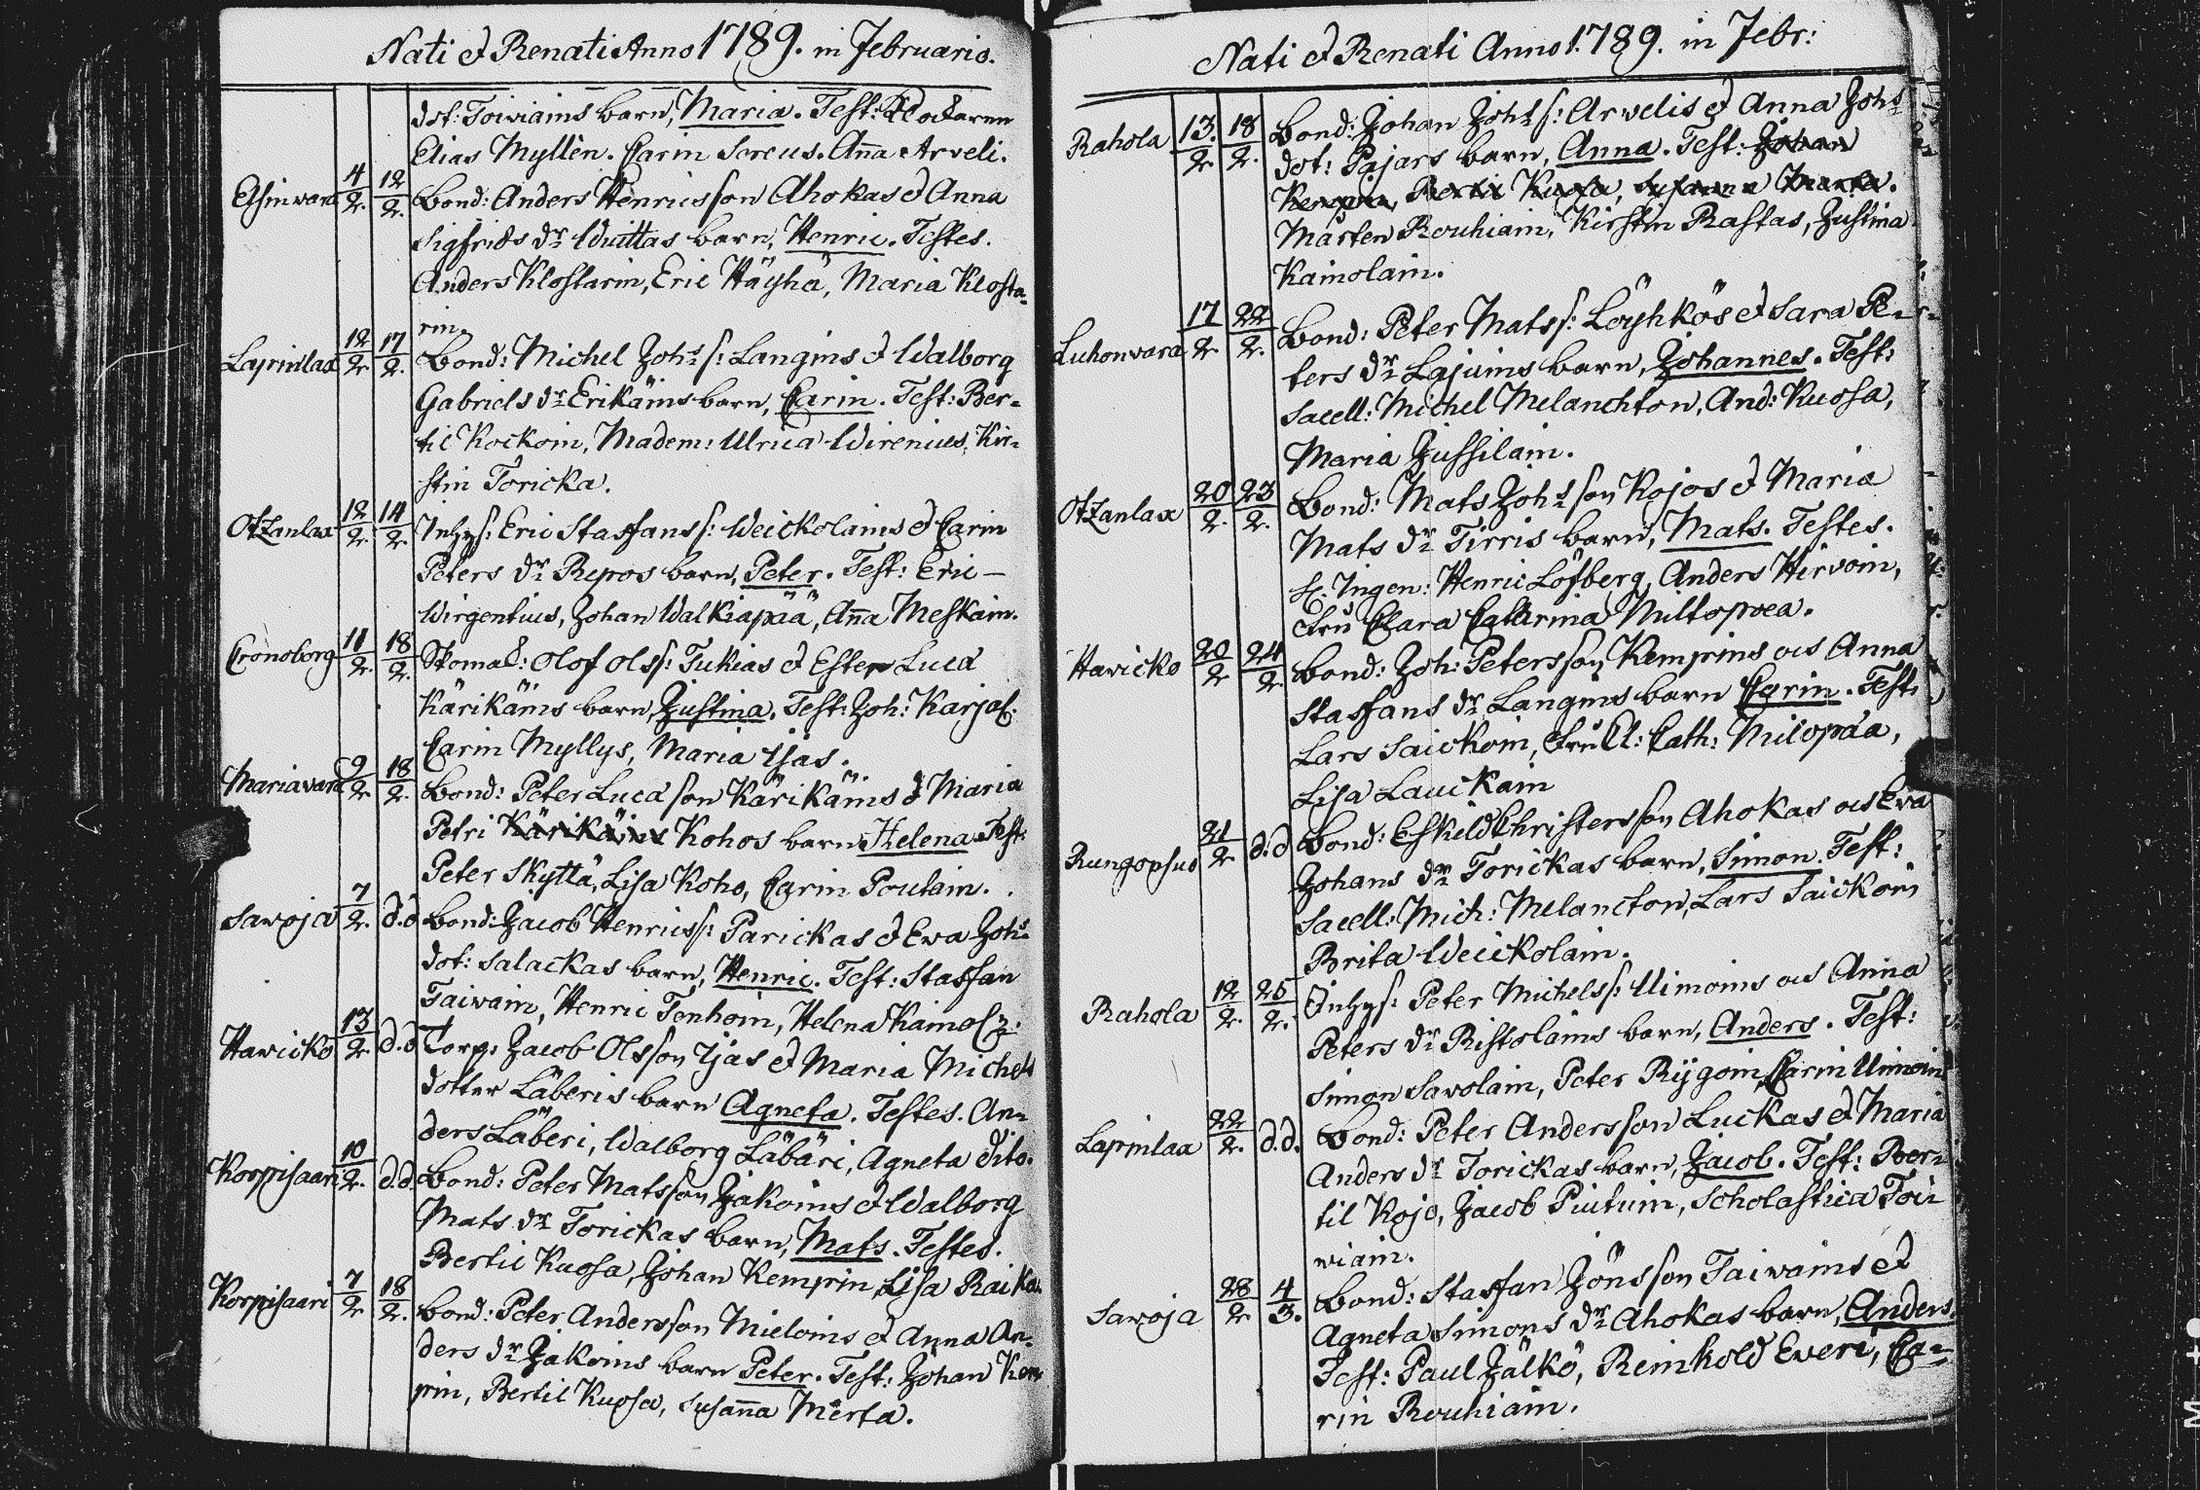 Nati et Renati Anno 1789. in Februario.
dot: Toiviains barn, Maria. Test: Klockaren
Elias Myllèn. Carin Sereus. Ana Arveli.
Elsinvara 4/2. 12/2. Bond: Anders Henricsson Ahokas et Anna
Sigfrids dr Wuittas barn, Henric. Testes.
Anders Klostarin, Eric Häyhä, Maria Klosta=
rin.
Lapinlax 12/2 17/2. Bond: Michel Johs s: Langins et Walborg
Gabriels dr Erikäins barn, Carin. Test: Ber=
til Kockoin, Madem: Ulrica Wirenius, Kir=
stin Toricka.
Otzanlax 12/2. 14/2. Inhys: Eric Staffans s: Weickolains et Carin
Peters dr Repos barn, Peter. Test: Eric
Wirgentius, Johan Walkiapää, Ana Meskain.
Cronoborg 11/2. 18/2. Skomak: Olof Olss: Tukias et Ester Luca
Kärikäins barn, Justina. Test: Joh: Karjal.
Carin Myllys, Maria Ijas.
Mariavara 9/2 18/2. Bond: Peter Luca son Kärikäins et Maria
Petri Kärikäins Kohos barn Helena Test:
Peter Skyttä, Lisa Koho, Carin Poutain.
Savoja 7/2. d.d Bond: Jacob Henricss: Parickas et Ewa Johs
dot: Salackas barn, Henric. Test: Staffan
Taivain, Henric Tenhoin, Helena Kainol:
Havicko 13/2. d.d Torp: Jacob Olsson Ijas et Maria Michels
dotter Läberis barn Agneta. Testes. An=
ders Läberi, Walborg Läbäri, Agneta dito.
Korpisaari 10/2. d.d. Bond: Peter Matsson Jakoins et Walborg
Mats dr Torickas barn, Mats. Testes.
Bertil Kuosa, Johan Kemppin, Lisa Raika
Korpisaari 7/2 18/2. Bond: Peter Andersson Mieloins et Anna An=
ders dr Jakoins barn Peter. Test: Johan Kem
pin, Bertil Kuosa, Susana Märta.
Nati et Renati Anno 1789. in Febr:
Rahola 13./2. 18/2. Bond: Johan Johs s: Arvelis et Anna Johs
dot: Pajars barn, Anna. Test: Johan
Kemppin, Bertil Kuosa, Susanna Märta.
Mårten Rouhiain, Kirstin Rastas, Justina
Kainolain.
Luhonvara 17/2. 22/2. Bond: Peter Matss: Löyhkös et Sara Pe=
ters dr Lajuins barn, Johannes. Test:
Sacell: Michel Melanchton, And: Kuosa,
Maria Jussilain.
Otzanlax 20/2. 23/2. Bond: Mats Johs son Kojos et Maria
Mats dr Tirris barn, Mats. Testes.
Ingen: Henric Löfberg, Anders Hirvoin,
Fru Clara Catharina Miltopoea.
Havicko 20/2 24/2 Bond: Joh: Petersson Kemppins och Anna
Staffans dr Langins barn Carin. Test:
Lars Saickoin, Fru Cl: Cath: Milopäa,
Lisa Lauckain
Rungopsuo 21/2 d:d Bond: Eskild Christersson Ahokas och Eva
Johans dr Torickas barn, Simon. Test:
Sacell: Mich: Melancton, Lars Saickoin
Brita Weickolain.
Rahola 12/2. 25/2. Inhys: Peter Michelss: Uimoins och Anna
Peters dr Ristolains barn, Anders. Test:
Simon Savolain, Peter Rijgoin, Carin Uimoin
Lapinlax 22/2. d.d. Bond: Peter Andersson Luckas et Maria
Anders dr Torickas barn, Jacob. Test: Ber=
til Kojo, Jacob Piutuin, Scholastica Toi=
wiain.
Savoja 28/2 4/3. Bond: Staffan Jönsson Taivains et
Agneta Simons dr Ahokas barn, Anders.
Test: Paul Jälkö, Reinhold Everi, Ca=
rin Rouhiain.